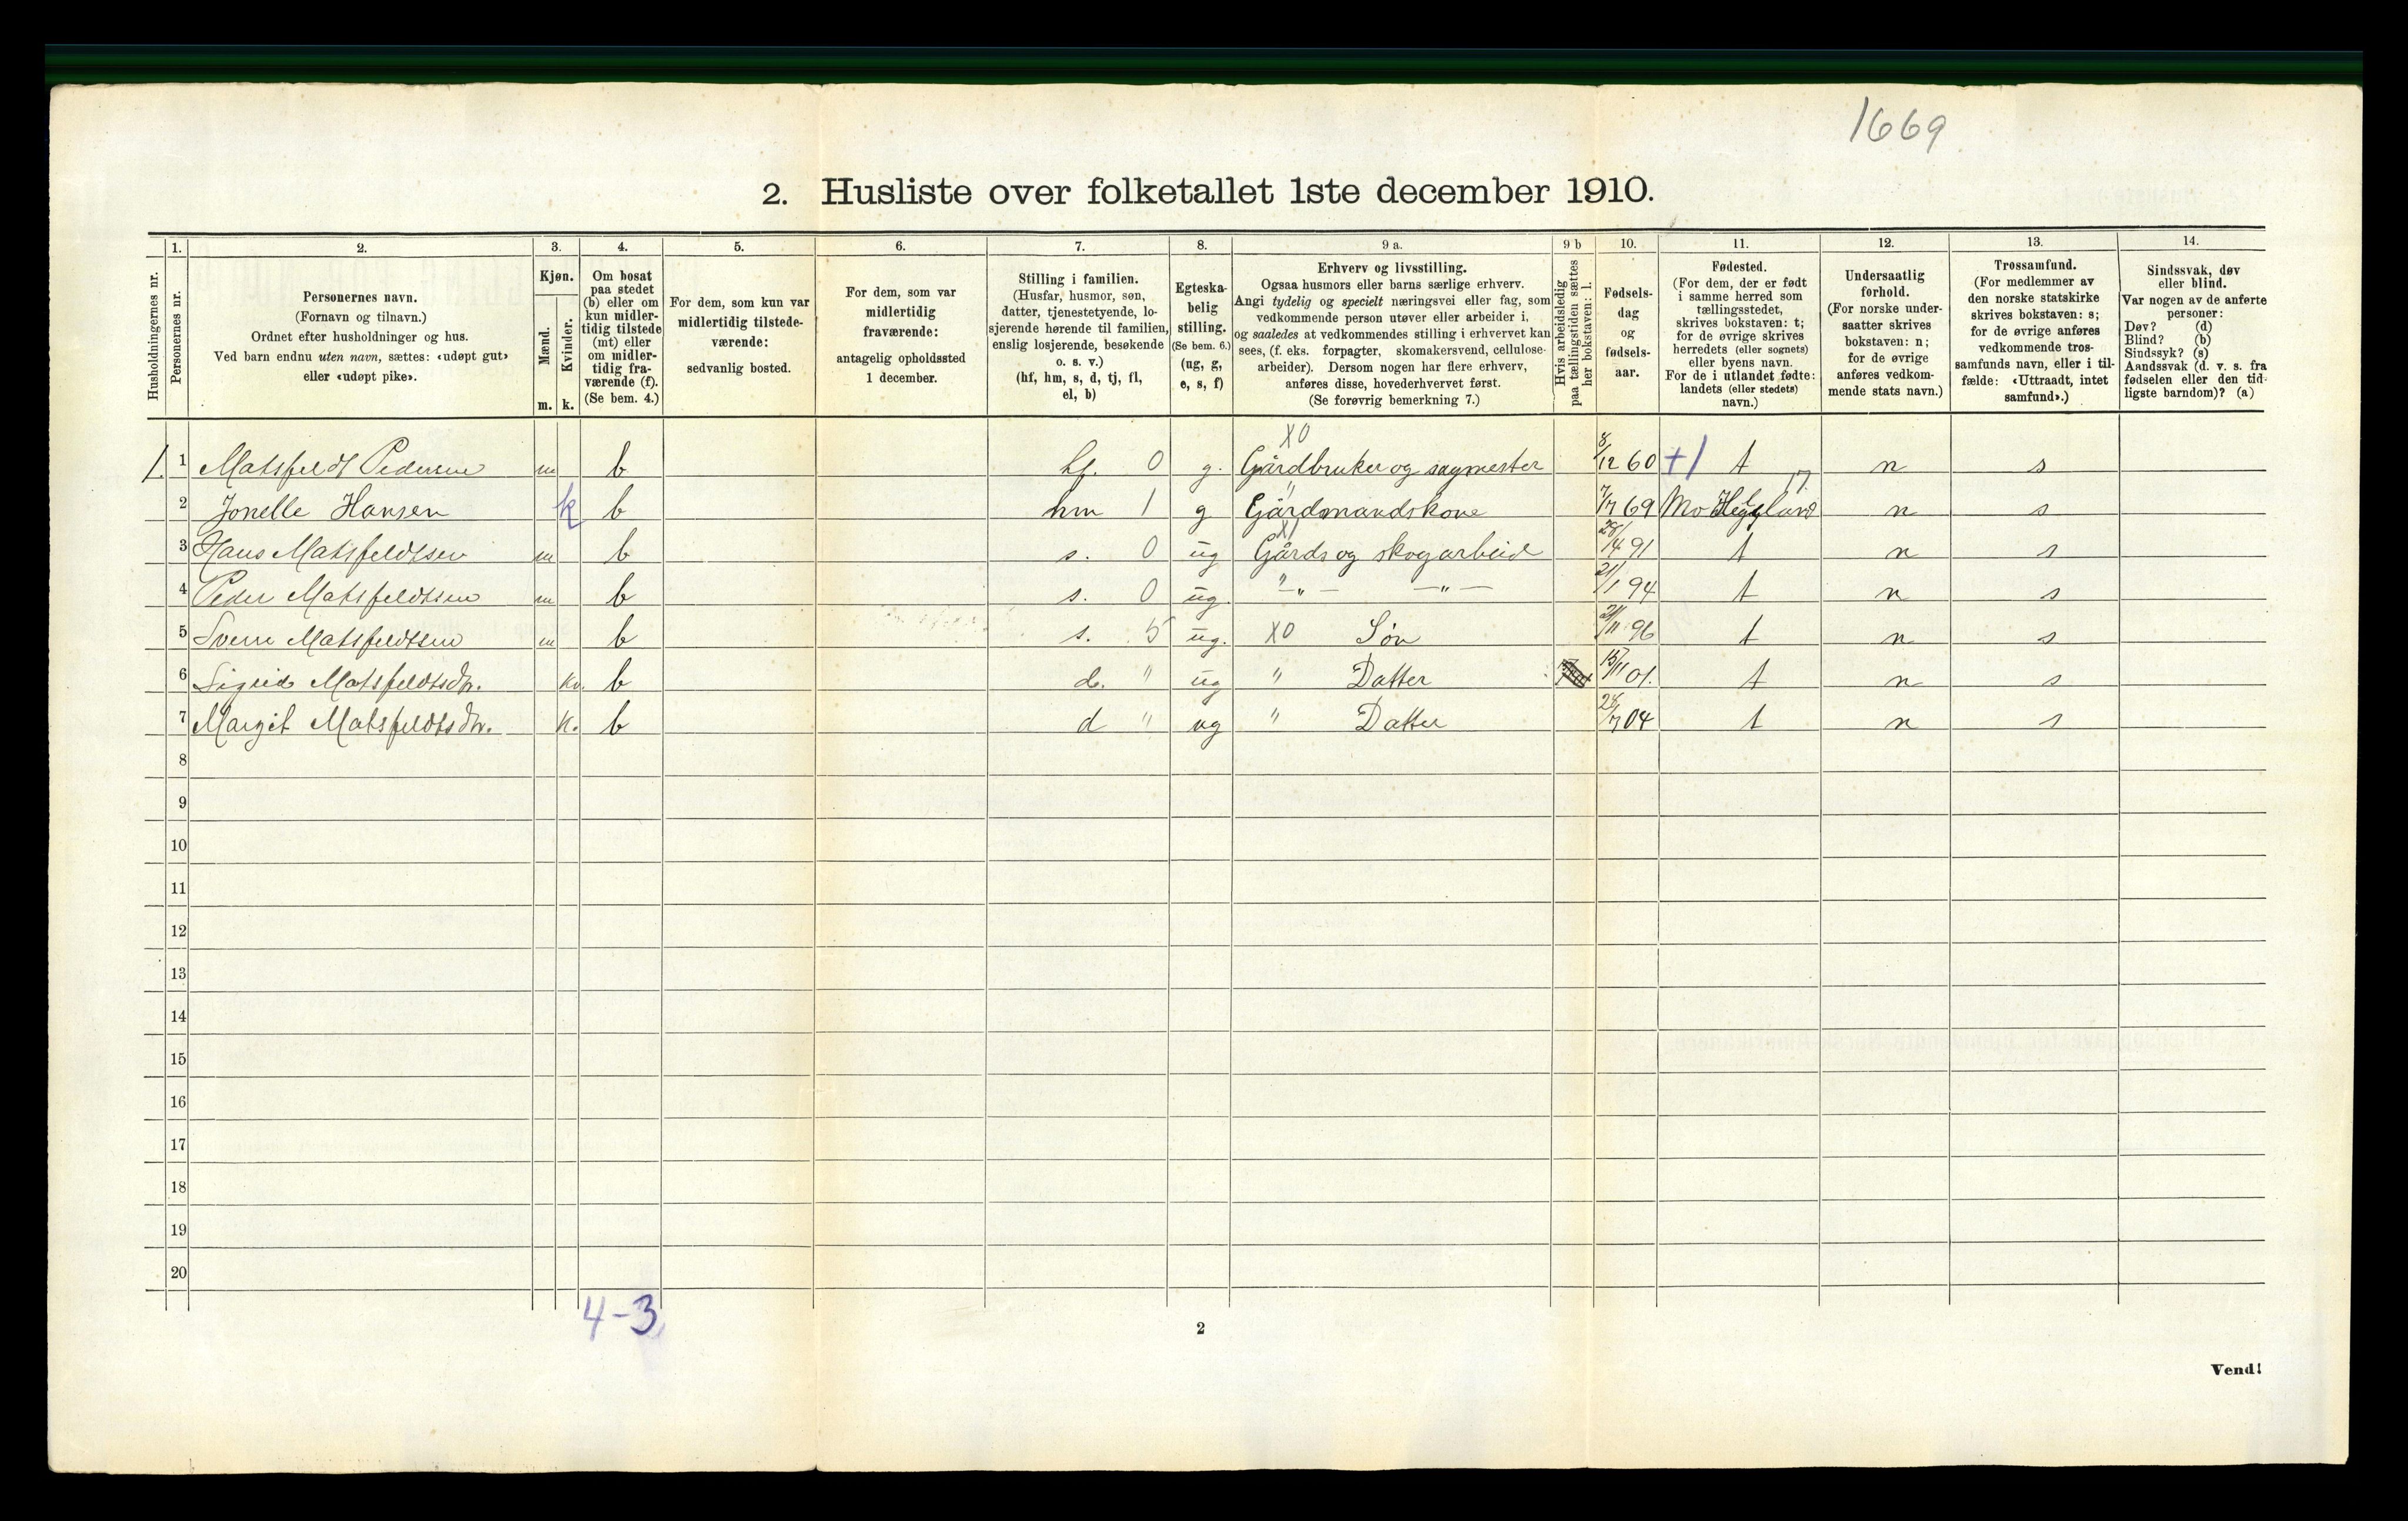 1669
2. Husliste over folketallet 1ste december 1910.
Husholdningernes nr.
1.
Personernes nr.
2.
Personernes navn.
(Fornavn og tilnavn.)
Ordnet efter husholdninger og hus.
Ved barn endnu uten navn, sættes: «udøpt gut»
eller «udøpt pike».
3.
Kjøn.
Mænd.
Kvinder.
m. k.
4.
Om bosat
paa stedet
(b) eller om
kun midler-
tidig tilstede
(mt) eller
om midler-
tidig fra-
værende (f).
(Se bem. 4.)
5.
For dem, som kun var
midlertidig tilstede-
værende:
sedvanlig bosted.
6.
For dem, som var
midlertidig
fraværende:
antagelig opholdssted
1 december.
7.
Stilling i familien.
(Husfar, husmor, søn,
datter, tjenestetyende, lo-
sjerende hørende til familien,
enslig losjerende, besøkende
o. s. v.)
(hf, hm, s, d, tj, fl,
el, b)
8.
Egteska-
belig
stilling.
(Se bem. 6.)
(ug, g,
e, s, f)
9 a.
Erhverv og livsstilling.
Ogsaa husmors eller barns særlige erhverv.
Angi tydelig og specielt næringsvei eller fag, som
vedkommende person utøver eller arbeider i,
og saaledes at vedkommendes stilling i erhvervet kan
sees, (f. eks. forpagter, skomakersvend, cellulose-
arbeider). Dersom nogen har flere erhverv,
anføres disse, hovederhvervet først.
(Se forøvrig bemerkning 7.)
9 b
Hvis arbeidsledig
paa tællingstiden sættes
her bokstaven: l.
10.
Fødsels-
dag
og
fødsels-
aar.
11.
Fødested.
(For dem, der er født
i samme herred som
tællingsstedet,
skrives bokstaven: t;
for de øvrige skrives
herredets (eller sognets)
eller byens navn.
For de i utlandet fødte:
landets (eller stedets)
navn.)
12.
Undersaatlig
forhold.
(For norske under-
saatter skrives
bokstaven: n;
for de øvrige
anføres vedkom-
mende stats navn.)
13.
Trossamfund.
(For medlemmer av
den norske statskirke
skrives bokstaven: s;
for de øvrige anføres
vedkommende tros-
samfunds navn, eller i til-
fælde: «Uttraadt, intet
samfund».)
14.
Sindssvak, døv
eller blind.
Var nogen av de anførte
personer:
Døv? (d)
Blind? (b)
Sindssyk? (s)
Aandssvak (d. v. s. fra
fødselen eller den tid-
ligste barndom)? (a)
X0
1 1 Matsfeldt Pedersen m b hf. 0 g. Gårdbruker og sagmester 8/12 60 +1 t n s
2 Jonelle Hansen k b hm 1 g " Gårdmandskone 7/7 69 Mo 17 n s
X1
3 Hans Matsfeldtsen m b s. 0 ug Gårds og skogarbeid 28/4 91 t n s
4 Peder Matsfeldtsen m b s. 0 ug. " -"- -"- 21/1 94 t n s
5 Sverre Matsfeldtsen m b s. 5 ug. X0 Søn 21/11 96 t n s
6 Sigrid Matsfeldtsdtr. kv. b d. " ug " Datter 15/11 01. t n s
7 Margit Matsfeldtsdtr. k. b d " ug " Datter 24/7 04 t n s
8
9
10
11
12
13
14
15
16
17
18
19
20
4-3
2
Vend!